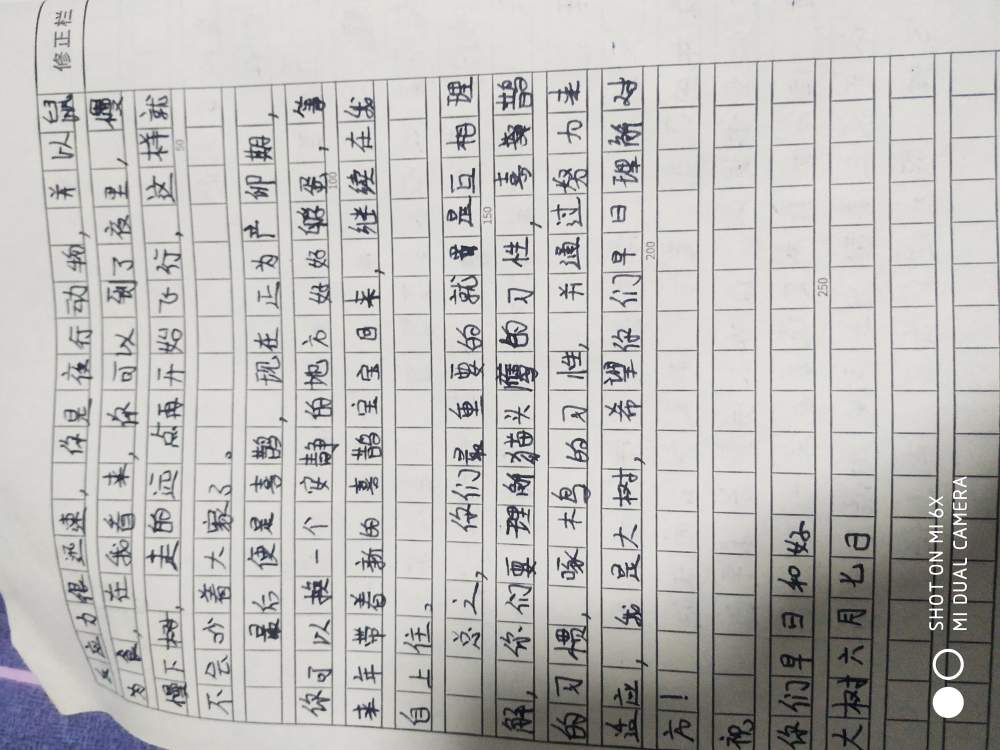 修正栏
反应力很迅速，你是夜行动物，并以鼠
为食，在我看来，你可以到了夜里，慢
慢下树，走的远点再开始飞行，这样就
50
不会吵着大家了。
最后便是喜鹊，现在正为产卵期，
你可以换一个安静的地方好好孵蛋，等
100
来年带着新的喜鹊宝宝回来，继续在我
自上住。
总之，你们最重要的就是互相理
150
解，你们要理解猫头鹰的习性，喜鹊
的习惯，啄木鸟的习性，并通过努力来
适应，我是大树，希望你们早日理解对
200
方！
祝
你们早日和好
250
大树六月七日
SHOT ON MI 6X
MI DUAL CAMERA